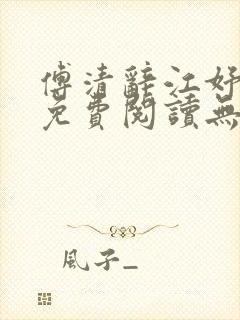 傅清辭江好
免費閱讀無
風子_